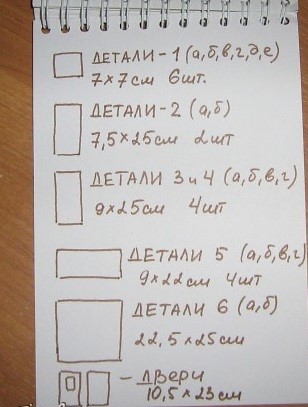 ДЕТАЛИ-1 (а,б,в,г,д,е)
7×7см 6шт.
ДЕТАЛИ-2 (а,б)
7,5×25см 2шт
ДЕТАЛИ 3 и 4 (а,б,в,г)
9×25см 4шт
ДЕТАЛИ 5 (а,б,в,г)
9×22см 4шт
ДЕТАЛИ 6 (а,б)
22,5×25см
– ДВЕРИ
10,5×23см